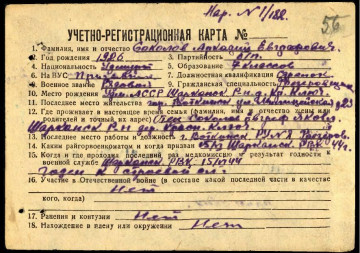 Нар. N 1/182
56
УЧЕТНО-РЕГИСТРАЦИОННАЯ КАРТА №
1. Фамилия, имя и отчество Соколов Аркадий Евграфович
2. Год рождения 1926 3. Партийность б/п.
4. Национальность 5. Образование 7 классов
6. На ВУС 7. Должностная квалификация стрелок
8. Военное звание Рядовой 9. Гражданская специальность
10. Место рождения Шарканск. Р-н
11. Последнее место жительства гор. Воткинск ул.
12. Где проживает в настоящее время семья (имя, отчество жены или
родителей и точный их адрес) Соколов Евграф
Шарканск. Р-н дер.
13. Последнее место работы и должность
14. Каким райгорвоенкоматом и когда призван Шарканск. РВК 44г.
15. Когда и где проходил последний раз медкомиссию и результат годности к
военной службе Шарканск. РВК 15/1 44г
годен к строевой сл.
16. Участие в Отечественной войне (в составе какой последней части в качестве
кого, когда) Нет
17. Ранения и контузии Нет
18. Нахождение в плену или окружении Нет